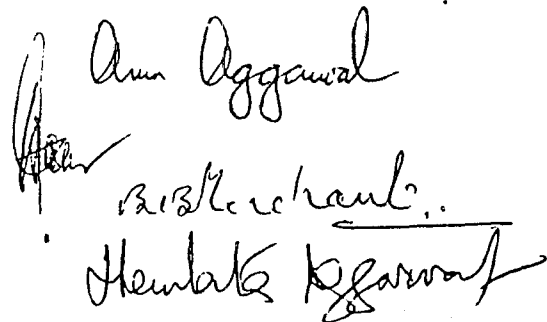 Arun Aggarwal
B.B. Merchant..
Hemlata Aggarwal